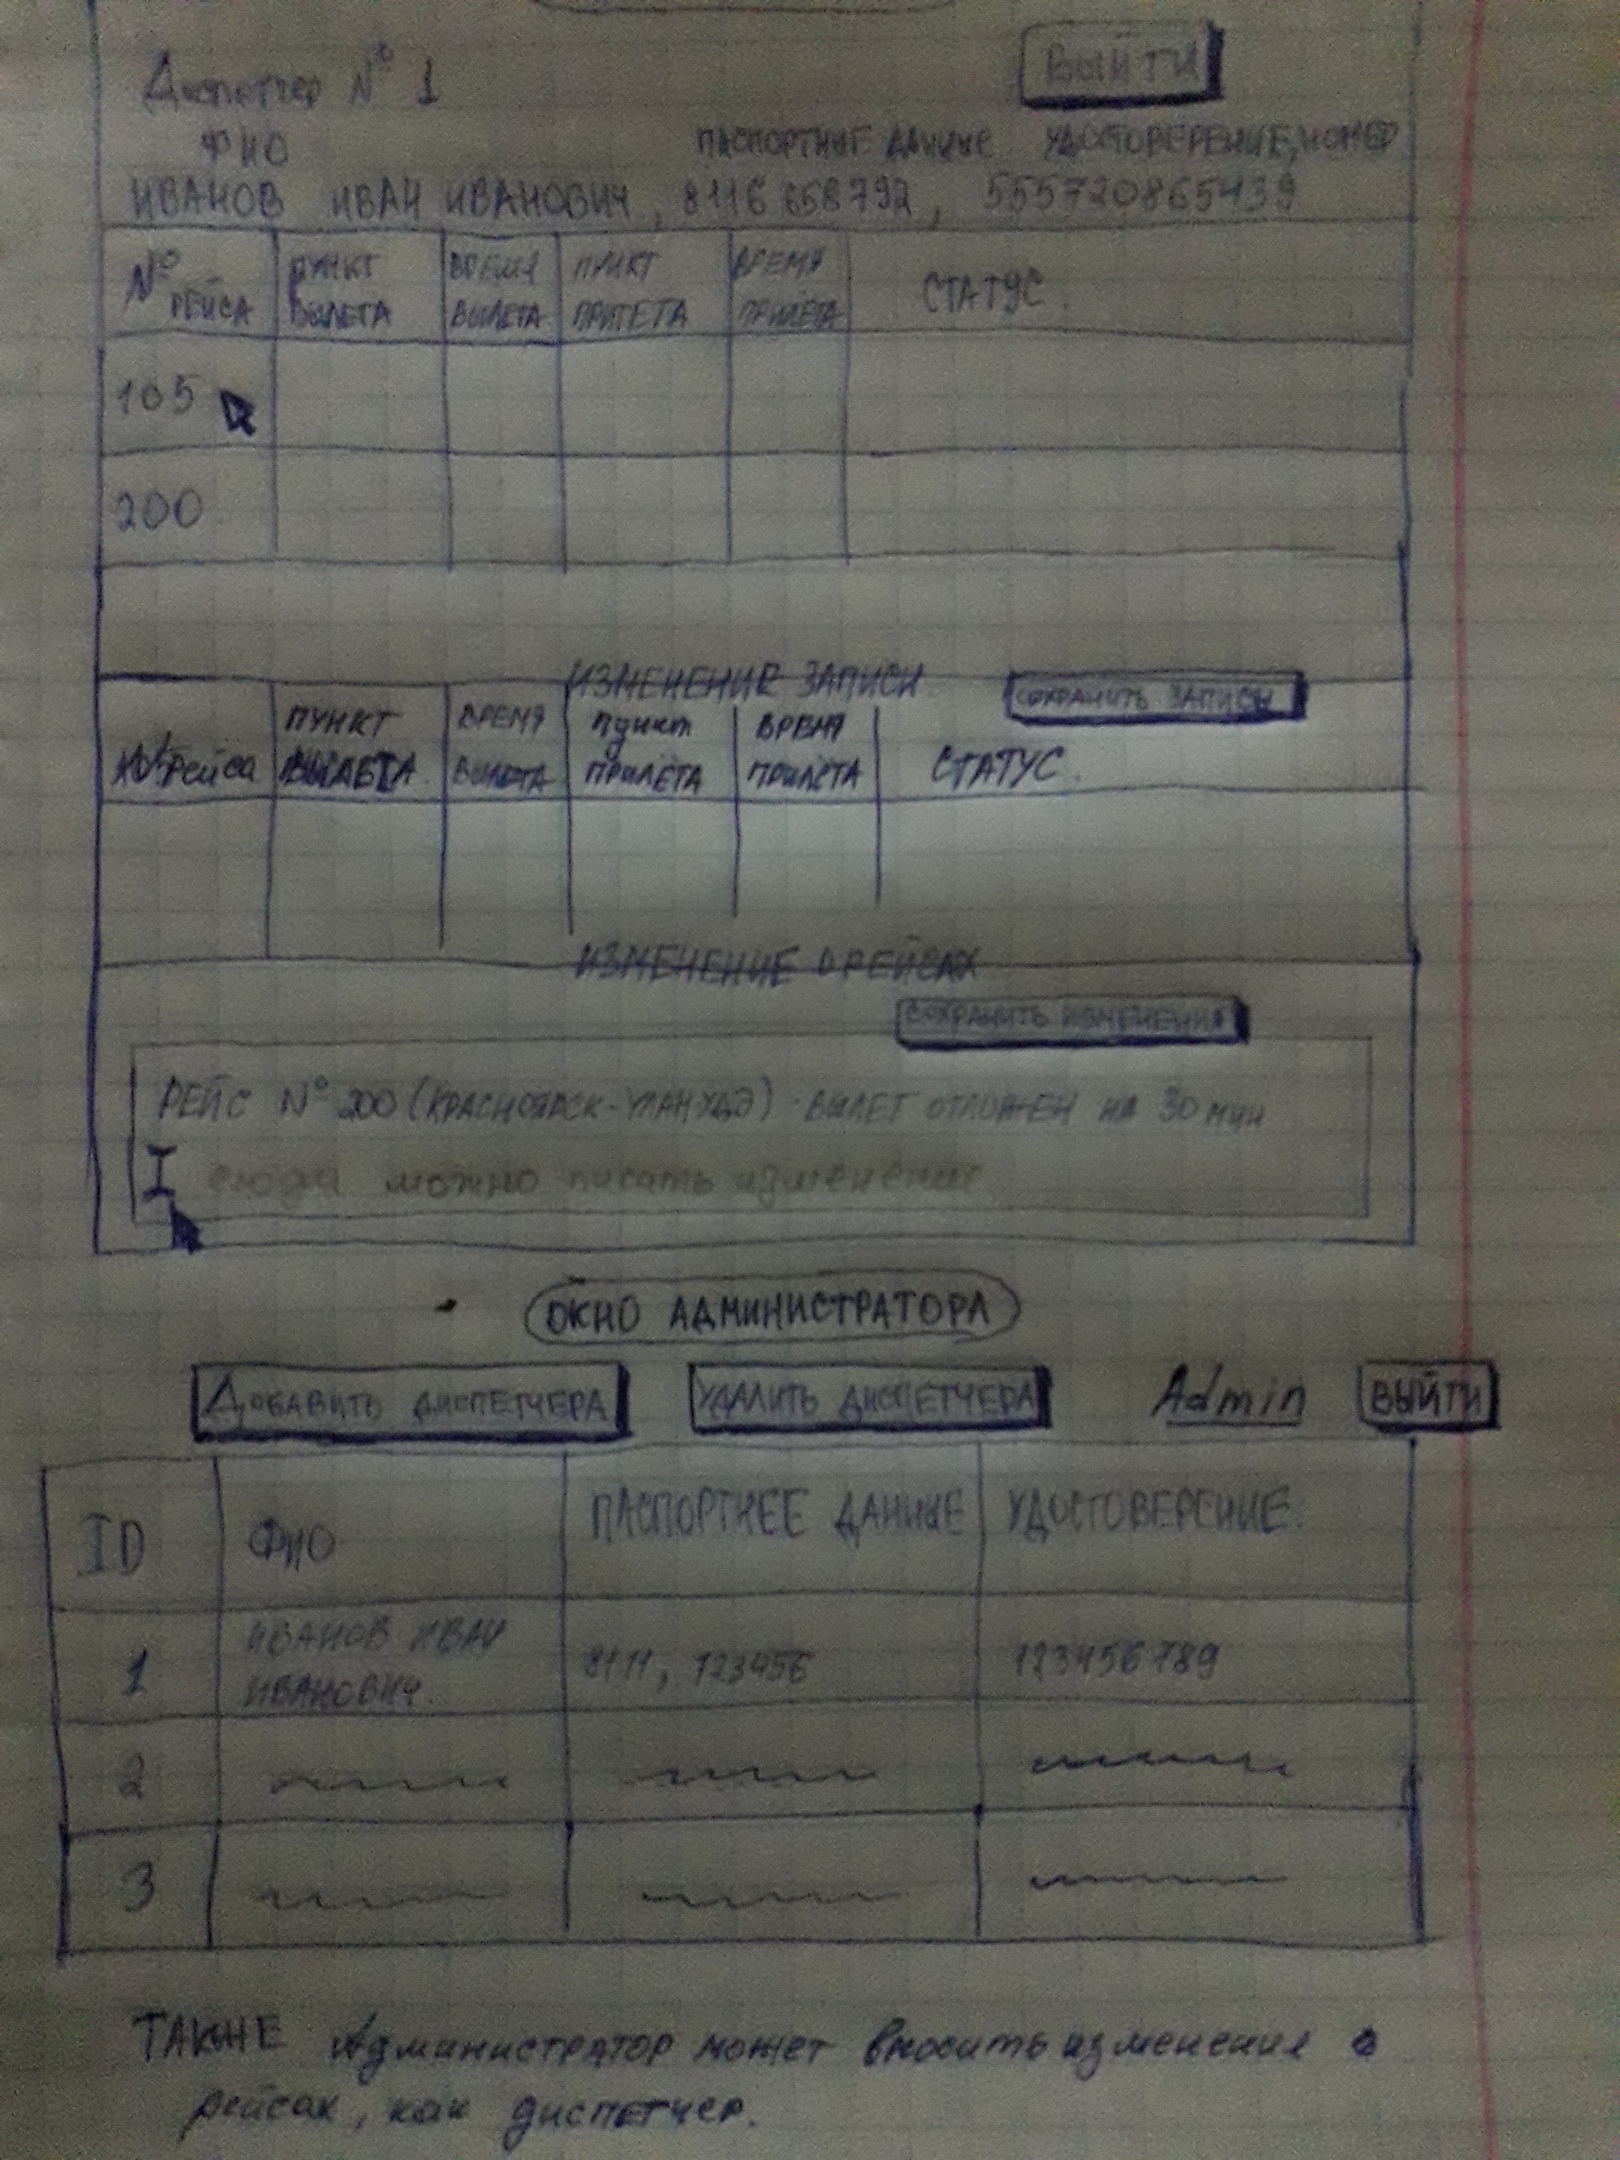 Диспетчер № 1
ВЫЙТИ
ФИО ПАСПОРТНЫЕ ДАННЫЕ УДОСТОВЕРЕНИЕ, НОМЕР
ИВАНОВ ИВАН ИВАНОВИЧ, 8116 658792, 555720865439
№ РЕЙСА
ПУНКТ ВЫЛЕТА
ВРЕМЯ ВЫЛЕТА
ПУНКТ ПРИЛЕТА
ВРЕМЯ ПРИЛЁТА
СТАТУС.
105
200
ИЗМЕНЕНИЕ ЗАПИСИ
СОХРАНИТЬ ЗАПИСЬ
№ Рейса
ПУНКТ ВЫЛЕТА
ВРЕМЯ ВЫЛЕТА
Пункт ПРИЛЁТА
ВРЕМЯ ПРИЛЁТА
СТАТУС.
ИЗМЕНЕНИЕ О РЕЙСАХ
СОХРАНИТЬ ИЗМЕНЕНИЯ
РЕЙС № 200 (КРАСНОЯРСК-УЛАН УДЭ) ВЫЛЕТ ОТЛОЖЕН НА 30 МИН
сюда можно писать изменение
ОКНО АДМИНИСТРАТОРА
ДОБАВИТЬ ДИСПЕТЧЕРА
УДАЛИТЬ ДИСПЕТЧЕРА
Admin
ВЫЙТИ
ID ФИО ПАСПОРТНЕЕ ДАННЫЕ УДОСТОВЕРЕНИЕ.
1 ИВАНОВ ИВАН ИВАНОВИЧ. 8111, 123456 123456789
2
3
ТАКЖЕ Администратор может вносить изменения о
рейсах, как диспетчер.